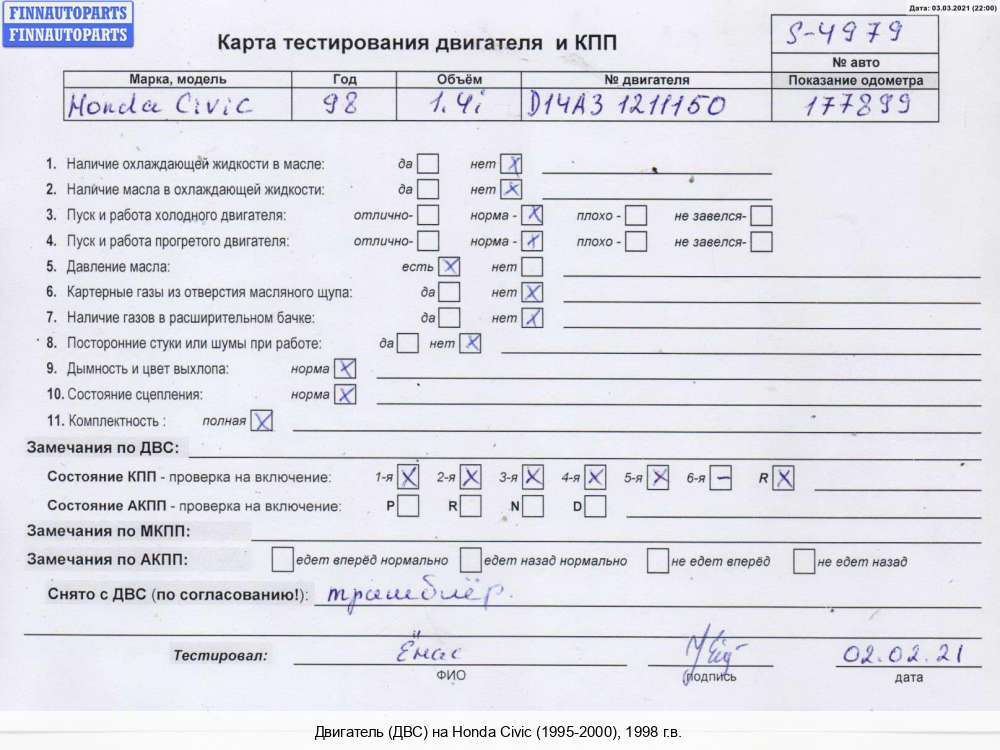 FINNAUTOPARTS
FINNAUTOPARTS
Дата: 03.03.2021 (22:00)
Карта тестирования двигателя и КПП
S-4979
№ авто
Марка, модель Год Объём № двигателя Показание одометра
Honda Civic 98 1.4i D14A3 1211150 177899
1. Наличие охлаждающей жидкости в масле: да нет X
2. Наличие масла в охлаждающей жидкости: да нет X
3. Пуск и работа холодного двигателя: отлично- норма - X плохо - не завелся-
4. Пуск и работа прогретого двигателя: отлично- норма - X плохо - не завелся-
5. Давление масла: есть X нет
6. Картерные газы из отверстия масляного щупа: да нет X
7. Наличие газов в расширительном бачке: да нет X
8. Посторонние стуки или шумы при работе: да нет X
9. Дымность и цвет выхлопа: норма X
10. Состояние сцепления: норма X
11. Комплектность : полная X
Замечания по ДВС:
Состояние КПП - проверка на включение: 1-я X 2-я X 3-я X 4-я X 5-я X 6-я – R X
Состояние АКПП - проверка на включение: P R N D
Замечания по МКПП:
Замечания по АКПП: едет вперёд нормально едет назад нормально не едет вперёд не едет назад
Снято с ДВС (по согласованию!): трамблёр.
Тестировал: Ёнас 02.02.21
ФИО подпись дата
Двигатель (ДВС) на Honda Civic (1995-2000), 1998 г.в.